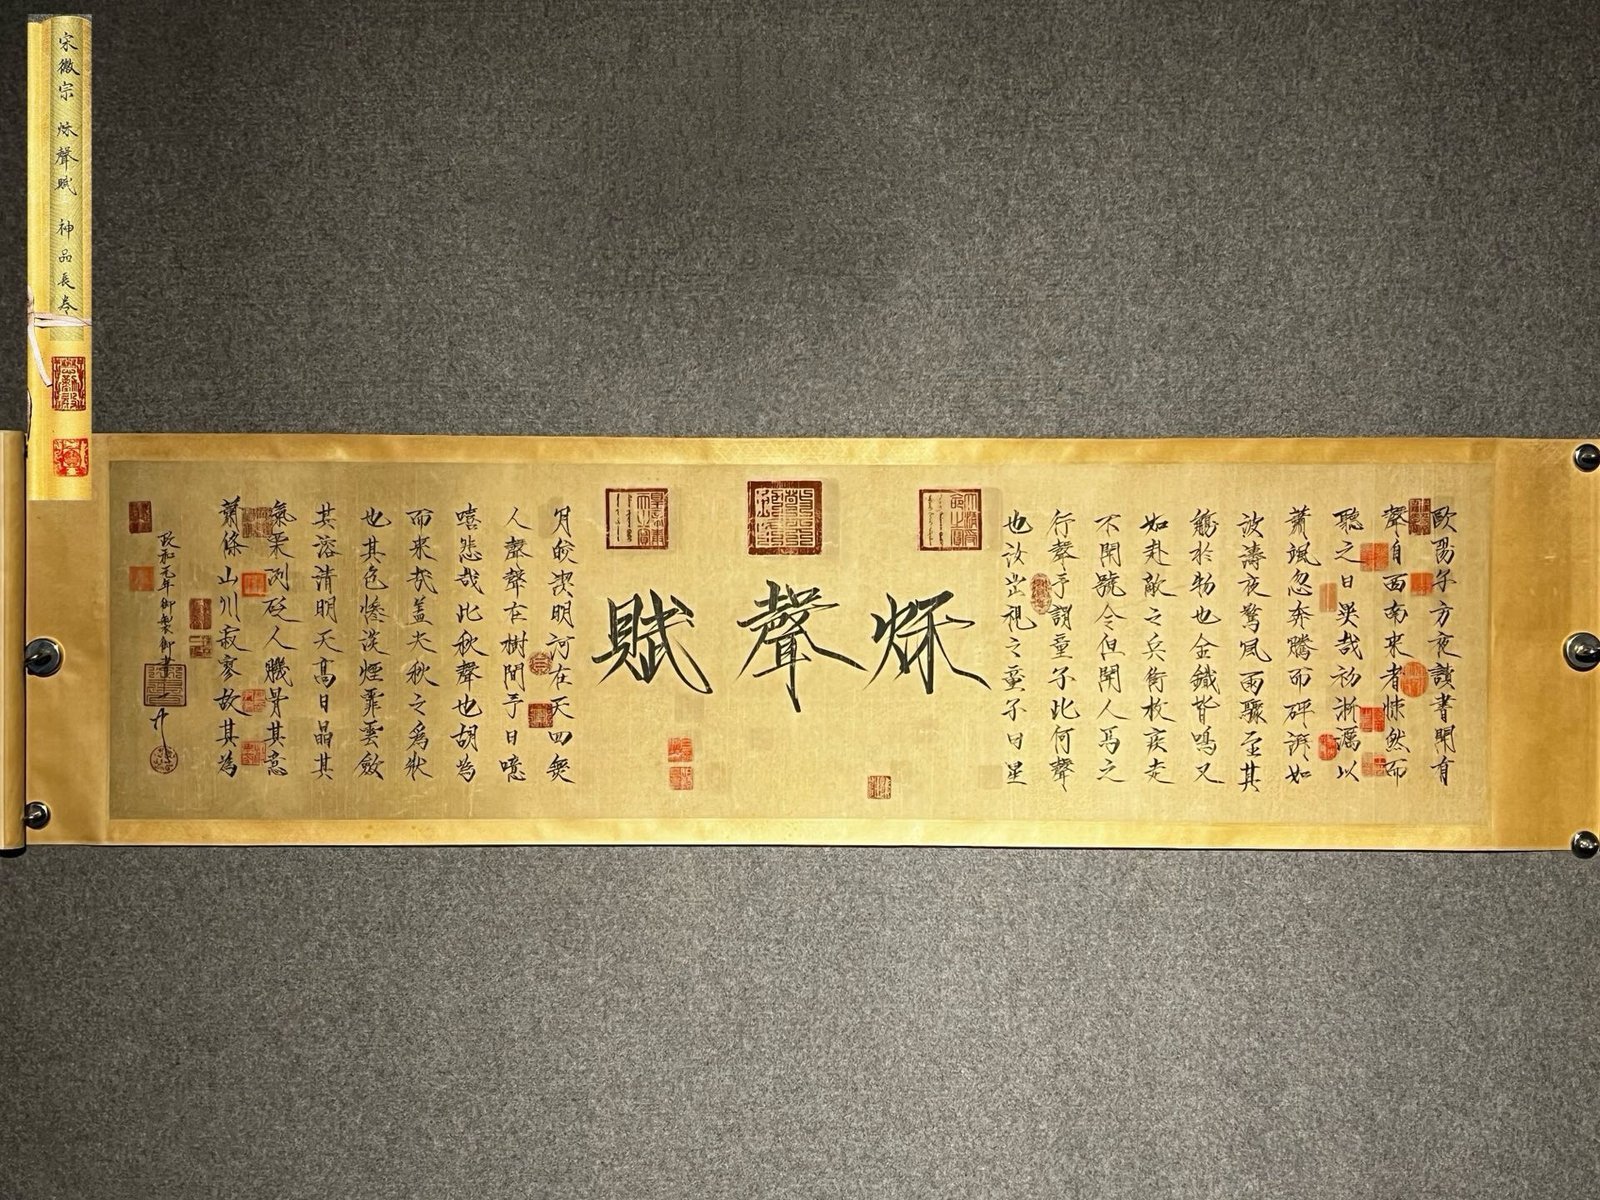 宋徽宗 秌聲賦 神品長卷
歐陽子方夜讀書聞有
聲自西南來者悚然而
聽之曰異哉初淅瀝以
蕭颯忽奔騰而砰湃如
波濤夜驚風雨驟至其
觸於物也金鐵皆鳴又
如赴敵之兵銜枚疾走
不聞號令但聞人馬之
行聲予謂童子此何聲
也汝出視之童子曰星
秌聲賦
月皎潔明河在天四無
人聲聲在樹間予曰噫
嘻悲哉此秋聲也胡為
而來哉蓋夫秋之為狀
也其色慘淡煙霏雲斂
其溶清明天高日晶其
氣栗冽砭人肌骨其意
蕭條山川寂寥故其為
政和元年御製御書